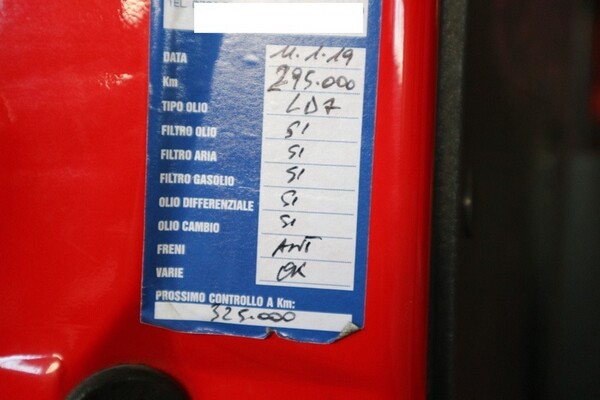 TEL.
DATA 11.1.19
Km 295.000
TIPO OLIO LD7
FILTRO OLIO SI
FILTRO ARIA SI
FILTRO GASOLIO SI
OLIO DIFFERENZIALE SI
OLIO CAMBIO SI
FRENI ANT
VARIE OK
PROSSIMO CONTROLLO A Km:
325.000